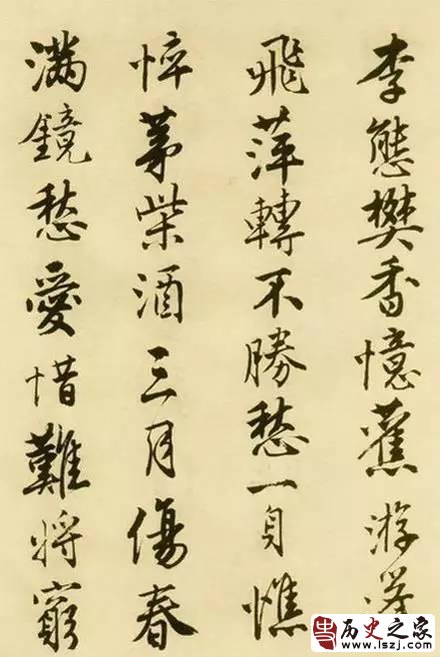 李態樊香憶舊游
飛萍轉不勝愁一身憔
悴茅柴酒三月傷春
滿鏡愁愛惜難將窮
历史之家
www.lszj.com